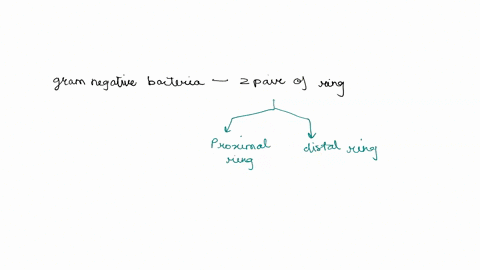 gram negative bacteria — 2 pair of ring
Proximal ring
distal ring